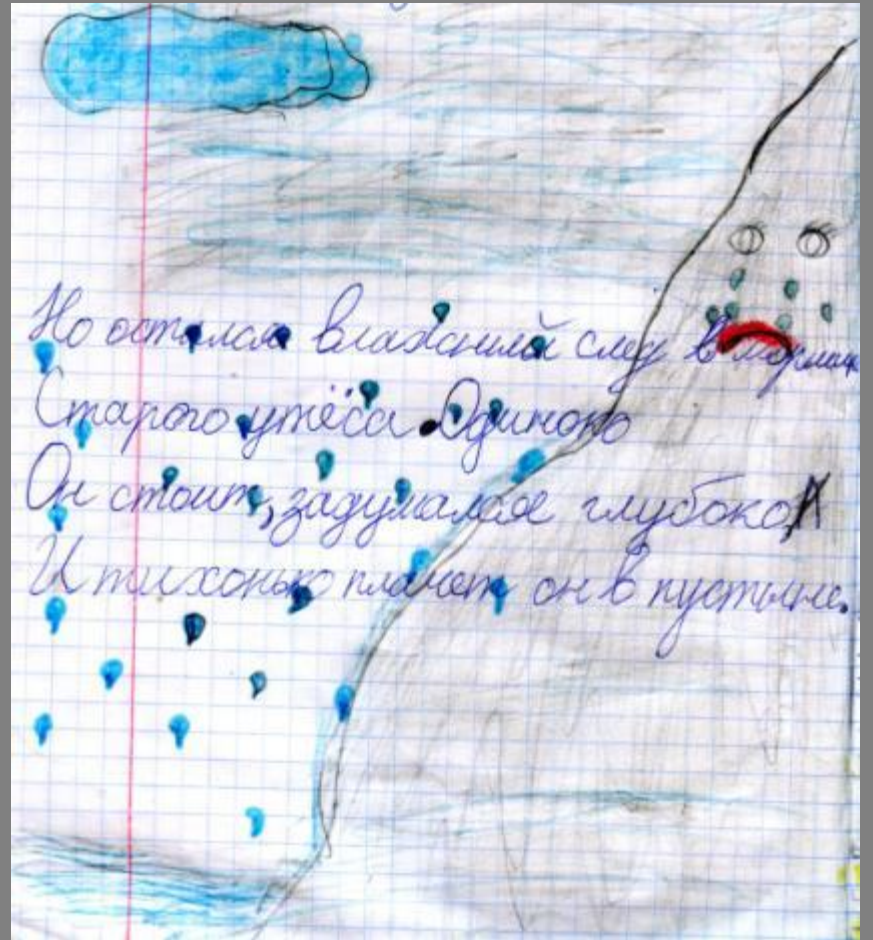 Но остался влажный след в морщине
Старого утёса. Одиноко
Он стоит, задумался глубоко,
И тихонько плачет он в пустыне.